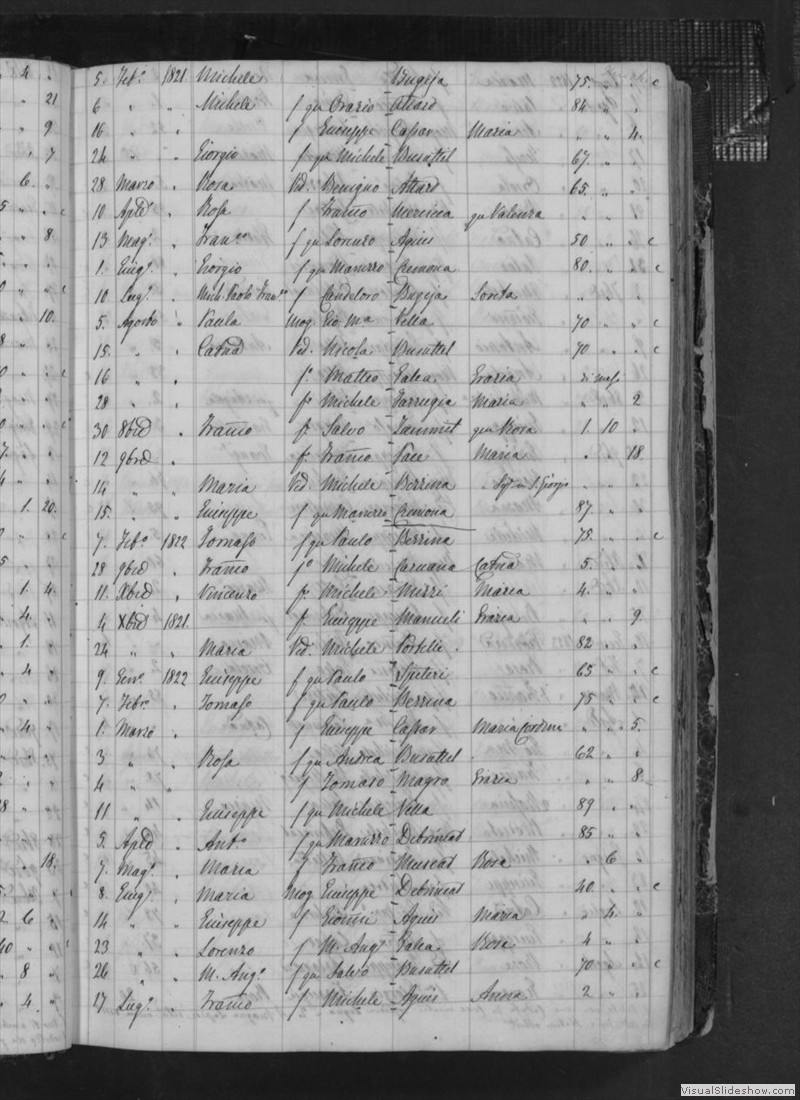 5. Feb.º 1821 Michele Bugeja 75. " " c
6 " " Michele f qu Orazio Attard 84 " "
16 " " f Giuseppe Caspar Maria " " 4.
24 " " Giorgio f qu Michele Busuttil 67. " "
28 Marzo " Rosa Ved. Benigno Attard 65. " "
10 Aple " Rosa f Franco qu Valenza " "
13 Mag.º " Fran.co f qu Lorenzo Agius 50 " " c
1. Giug.º " Giorgio f qu Maurizo Cremona 80. " " c
10 Lug.º " Mich. Paolo Fran.co f Candeloro Bugeja Soreta " " "
5. Agosto " Paula mog. Gio Ma Vella 70 " " c
15. " " Catnà Ved. Nicola Busuttil 70 " " c
16 " " fº Matteo Galea Grazia
28 " " fº Michele Farrugia Maria " " 2
30 8bre " Franco f. Salvo Zammit qu Rosa 1. 10 "
12 9bre " f. Franco Pace Maria " " 18
14 " " Maria Ved. Michele Berrina S. Giorgio " " "
15. " " Giuseppe f qu Maurizo Cremona 87. " "
7. Feb.º 1822 Tomaso f qu Paulo Berrina 75. " " c
28 9bre " Franco fº Michele Caruana Catnà 5. " "
11. Xbre " Vincenzo f. Michele Mizzi Maria 4. " "
4 Xbre 1821. f. Giuseppe Manueli Grazia " " 9.
24 " " Maria Ved. Michele Portelli 82 " "
9. Gen.º 1822 Giuseppe f qu Paulo Spiteri 65 " " c
7. Febr.º " Tomaso f qu Paulo Berrina 75 " " c
1. Marzo " f Giuseppe Caspar Maria Cordina " " 5.
3 " " Rosa f qu Andrea Busuttil 62 " "
4 " " f Tomaso Magro Grazia " " 8
11 " " Giuseppe f qu Michele Vella 89 " "
5. Aple " Ant.º f qu Maurizo Debrincat 85 " "
7. Mag.º " Maria f Franco Muscat Rosa " 6 "
8. Giug.º " Maria mog Giuseppe Debrincat 40. " " c
14 " " Giuseppe f Agius Maria " 4. "
23 " " Lorenzo f M. Ang.º Galea Rosa 4 " "
26 " " M. Ang.º f qu Salvo Busuttil 70 " " c
17 Lug.º " Franco f Michele Agius Anna 2 " "
VisualSlideshow.com